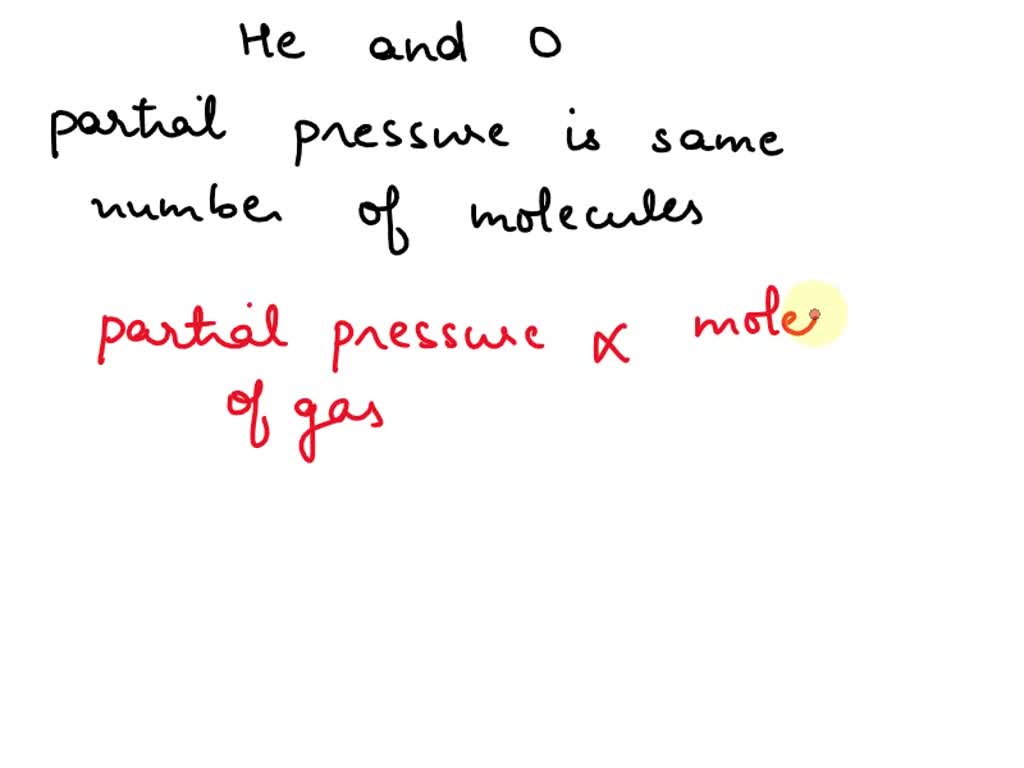 He and O
partial pressure is same
number of molecules
partial pressure ∝ mole
of gas